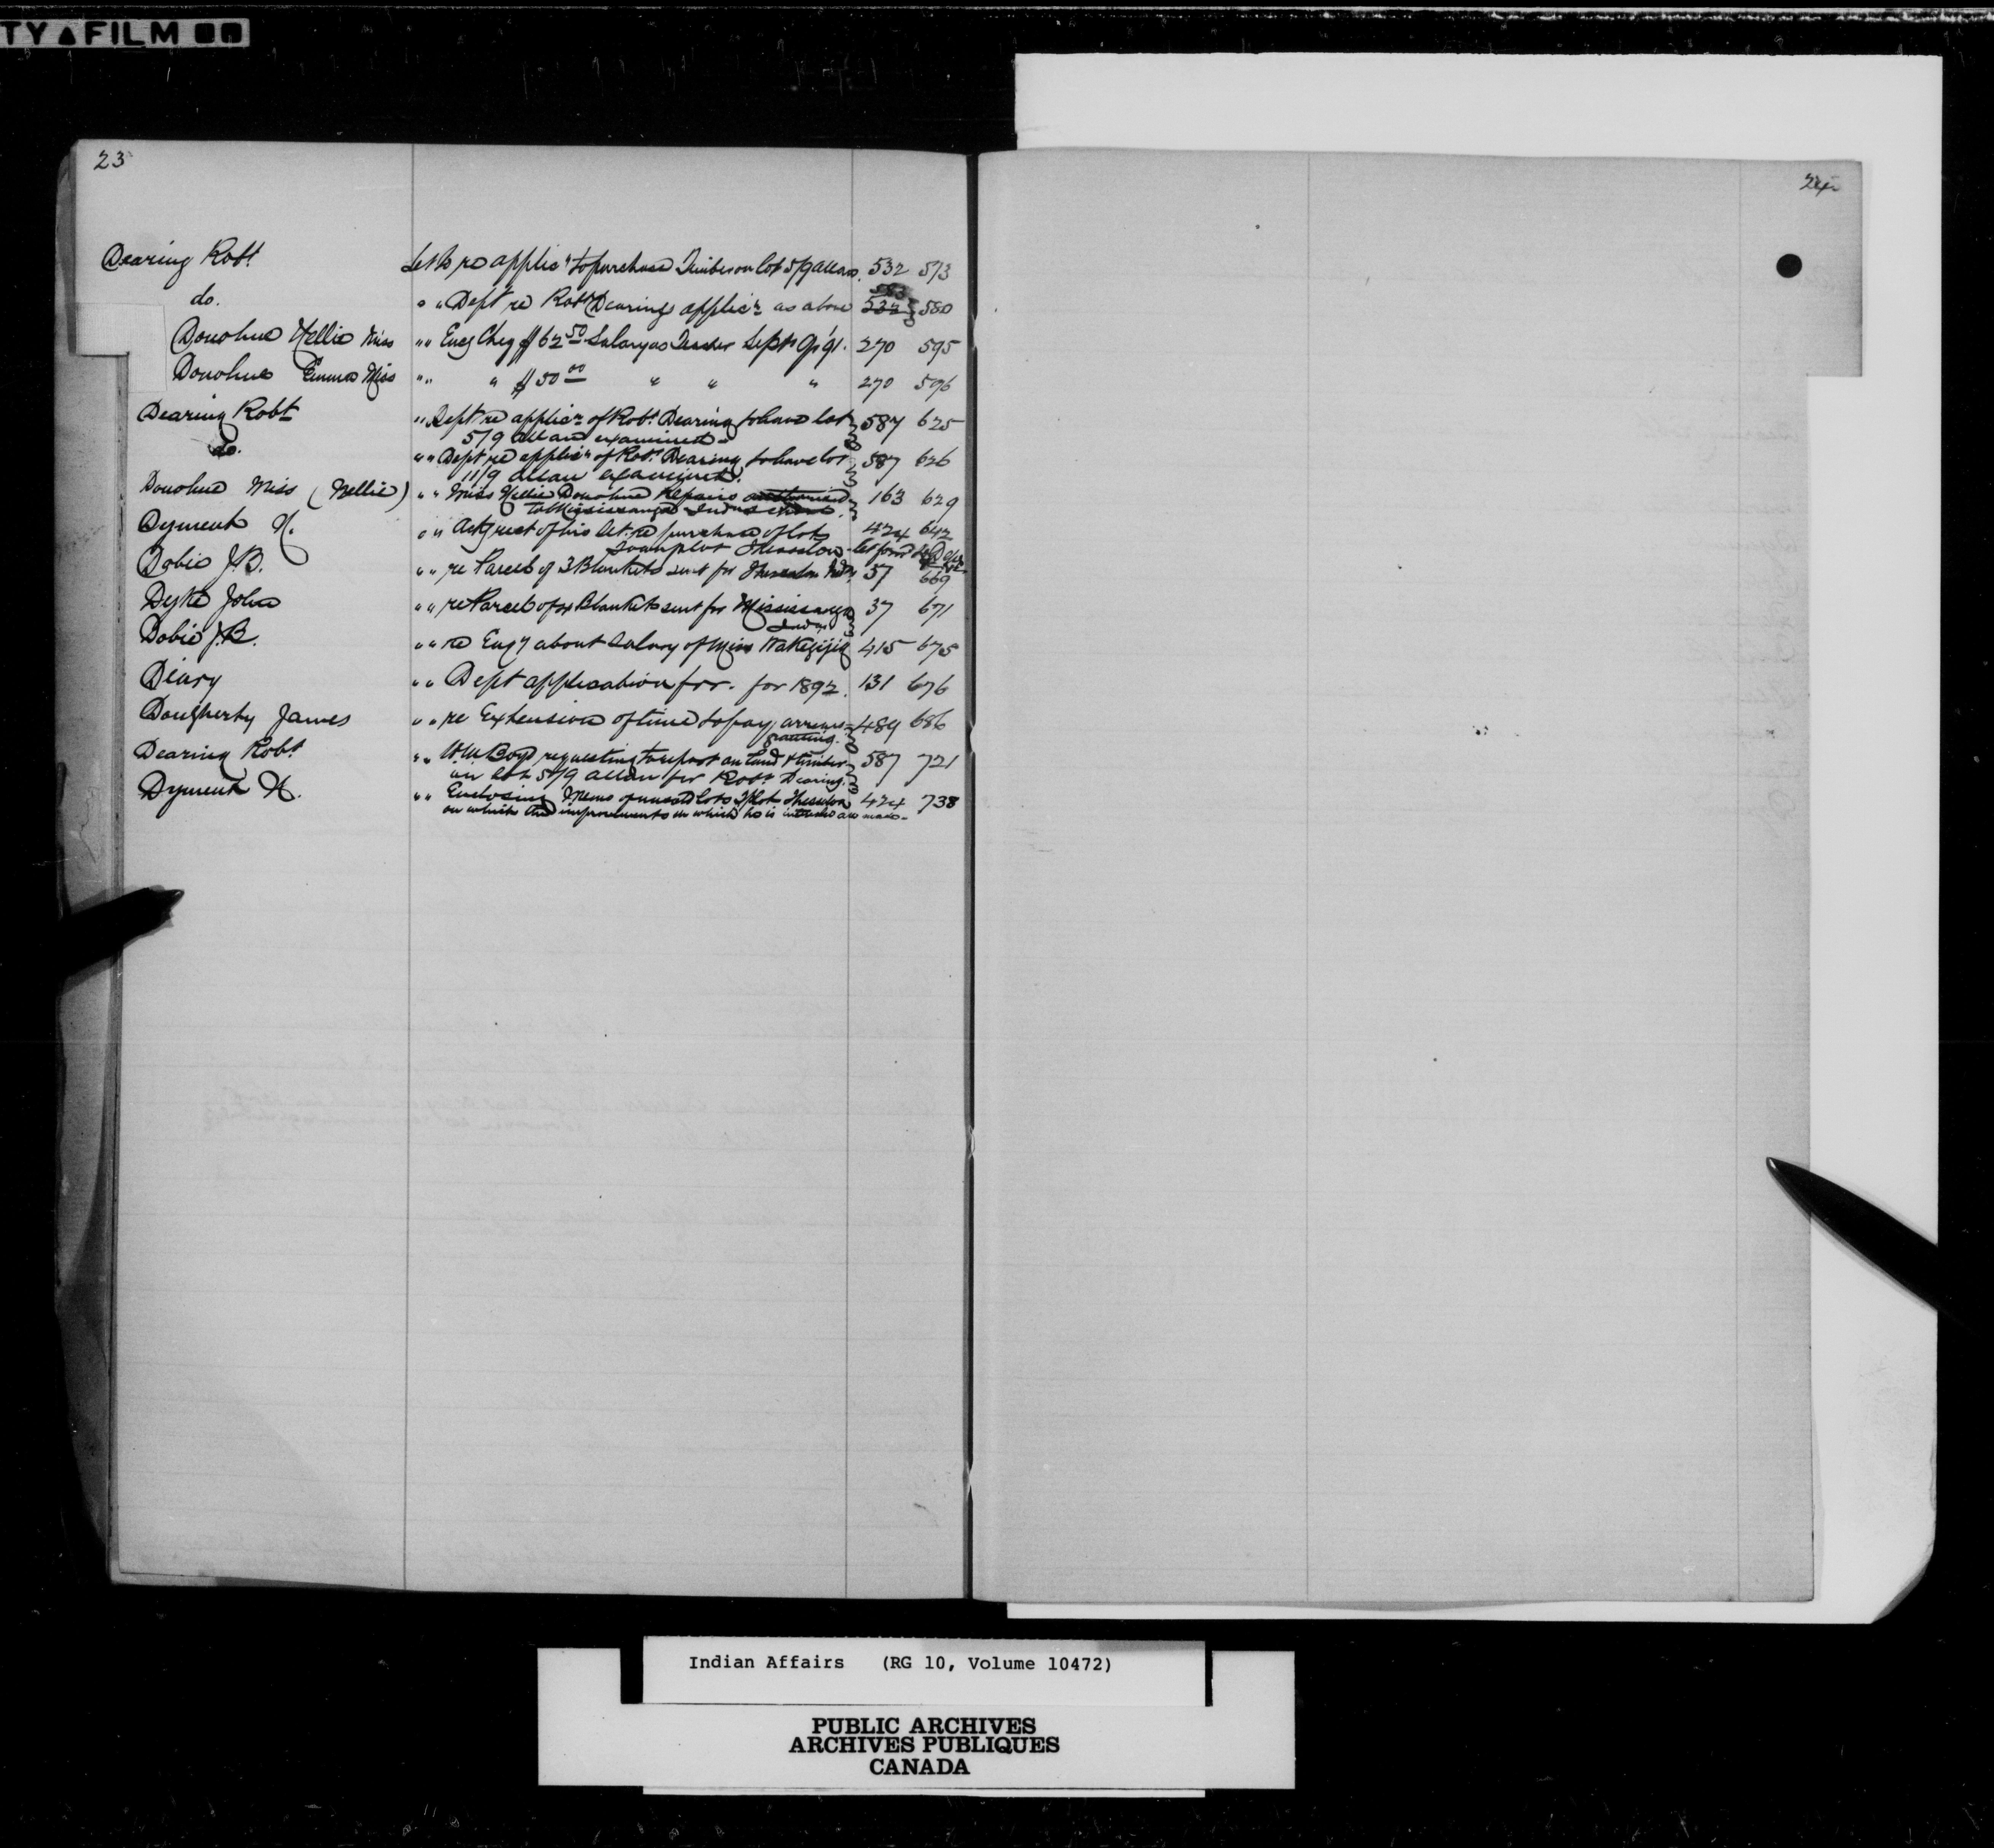 TY▲FILM
23
24
Dearing Robt. Let to re applicn to purchase Timber on lot 5/9 Allan. 532 573
do. " " Dept re Robt Dearings applicn as above 532 583 580
Donohue Nellie Miss " " Encg Cheq $62.50 Salary as Teacher Sept Qr '91. 270 595
Donohue Emma Miss " " " $50.00 " " " 270 596
Dearing Robt " " Dept re applicn of Robt. Dearing to have lot 587 625
5/9 Allan examined
do. " " Dept re applicn of Robt. Dearing to have lot 587 626
11/9 Allan examined.
Donohue Miss (Nellie) " " Miss Nellie Donohue Repairs authorised 163 629
to Mississauga Indus
Dyment N. " " Ackg rect of his let. re purchase of lots 424 642
Townplot Thessalon
Dobie J.B. " " re Parcel of 3 Blankets sent for Thessalon Inds 57 669
Dyke John " " re Parcel of 4 Blankets sent for Mississauga 37 671
Inds
Dobie J.B. " " re Enqy about Salary of Miss Wakegijig 415 675
Diary " " Dept application for. for 1892. 131 676
Dougherty James " " re Extension of time to pay arrears 489 686
granting.
Dearing Robt " " Wm Boyd requesting to report on land & timber 587 721
on lot 5/9 Allan for Robt Dearing.
Dyment N. " " Enclosing Memo of unsold lots T/Plot Thessalon 424 738
on which the improvements in which he is interested are made.
Indian Affairs (RG 10, Volume 10472)
PUBLIC ARCHIVES
ARCHIVES PUBLIQUES
CANADA